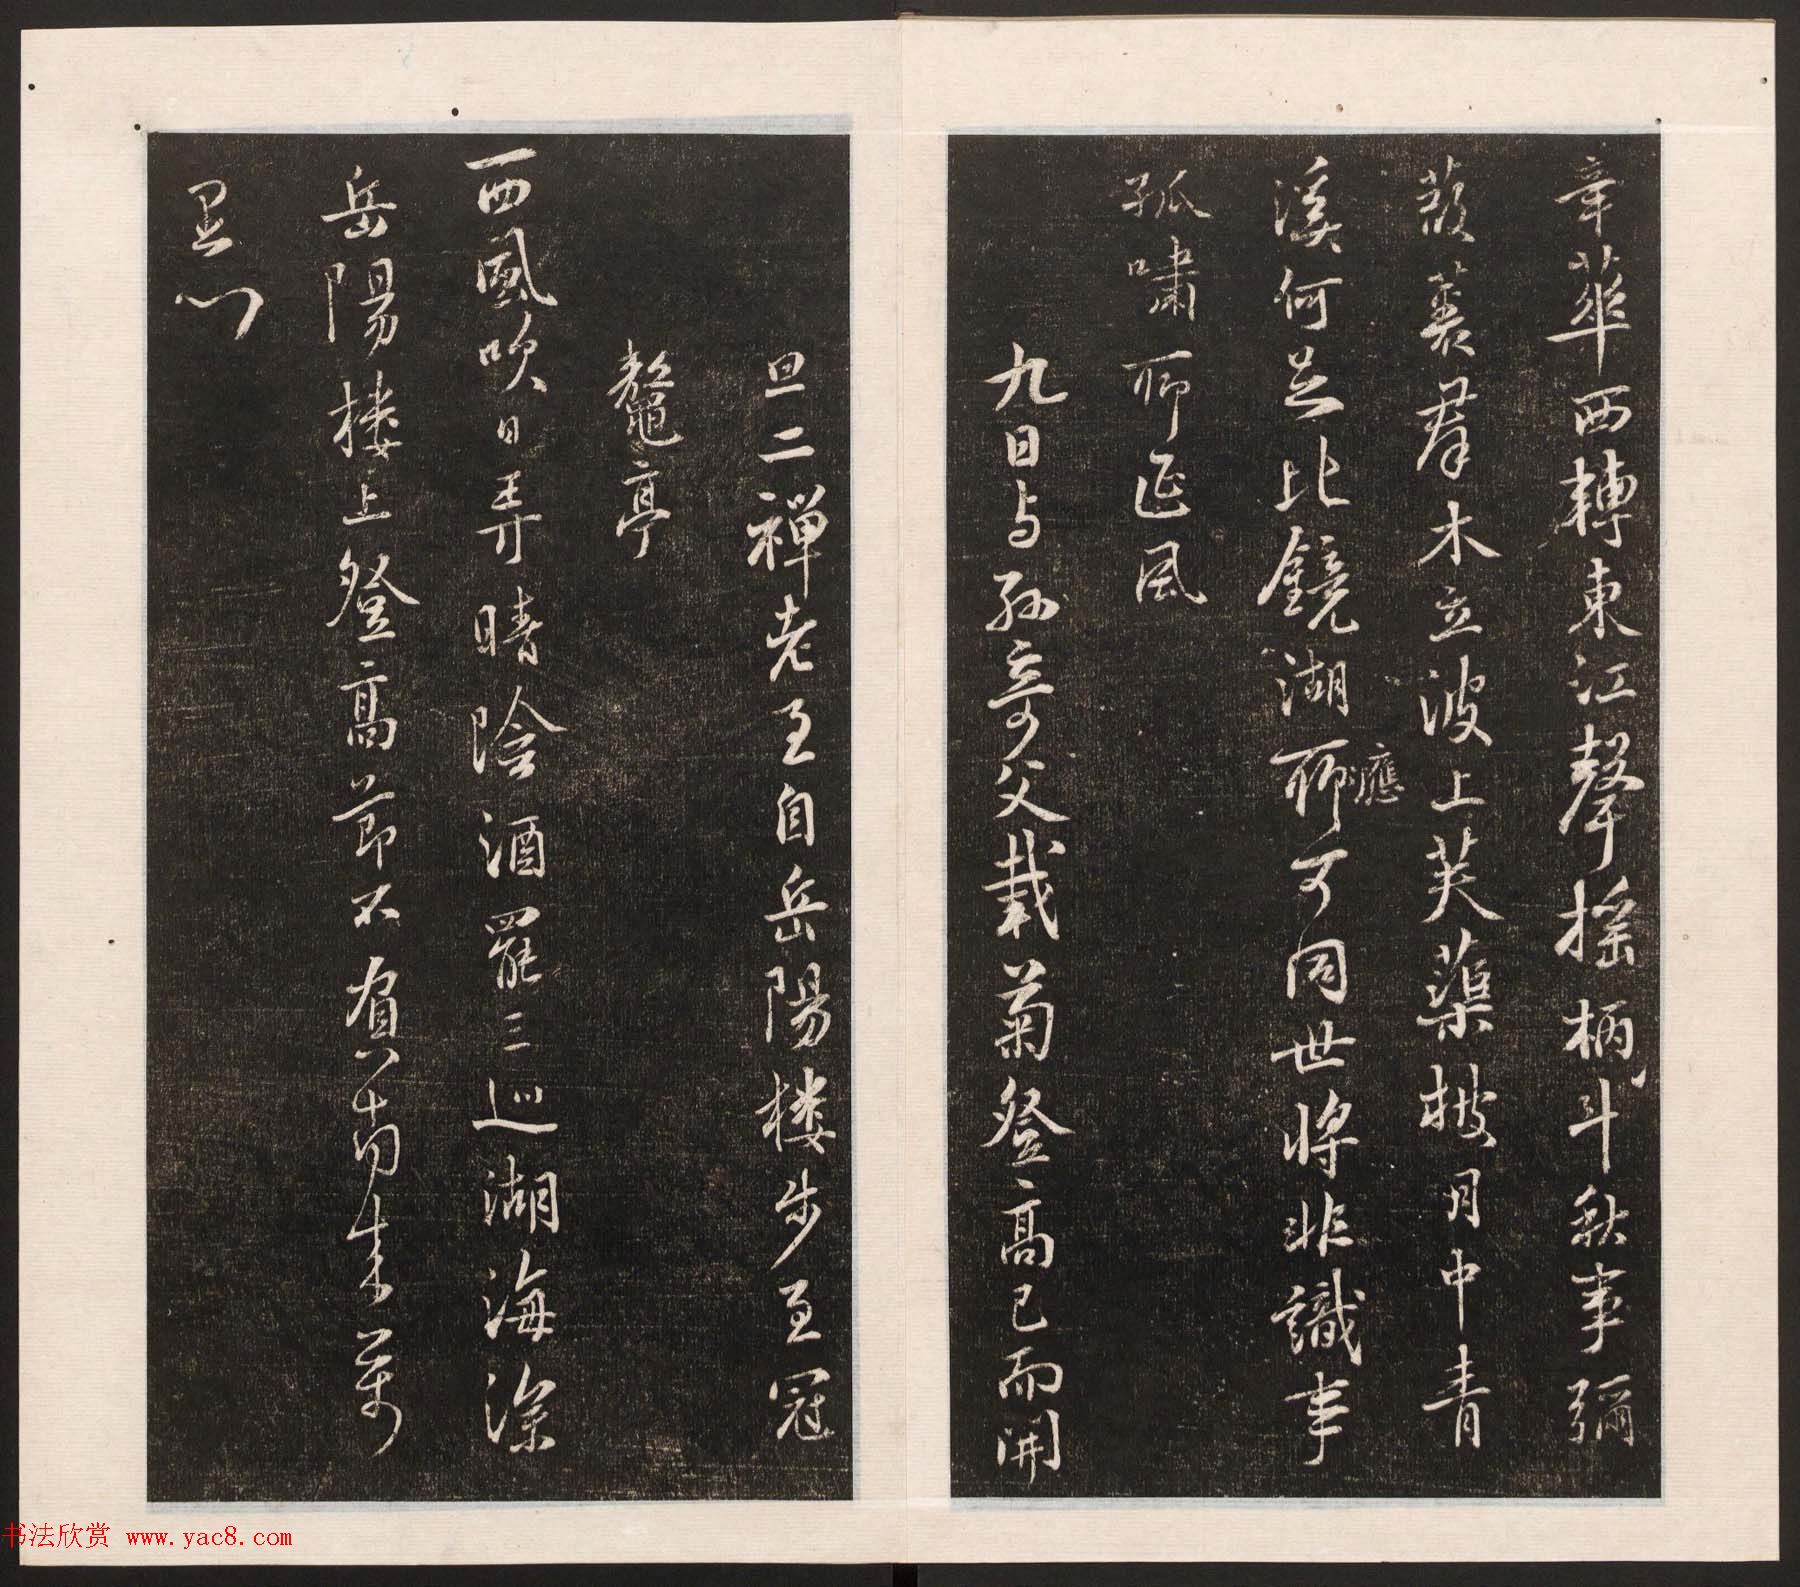 章華西轉東江聲搖柄斗秋事彌
葭菼群木立波上芙蕖披月中青
溪何足比鏡湖聊應可同世將非識事
孤嘯聊延風
九日与孫奇父栽菊登高已而開
旦二禪老至自岳陽樓步至冠
鼇亭
西風吹日弄晴陰酒罷三巡湖海深
岳陽樓上登高節不負南來萬
里心
书法欣赏 www.yac8.com